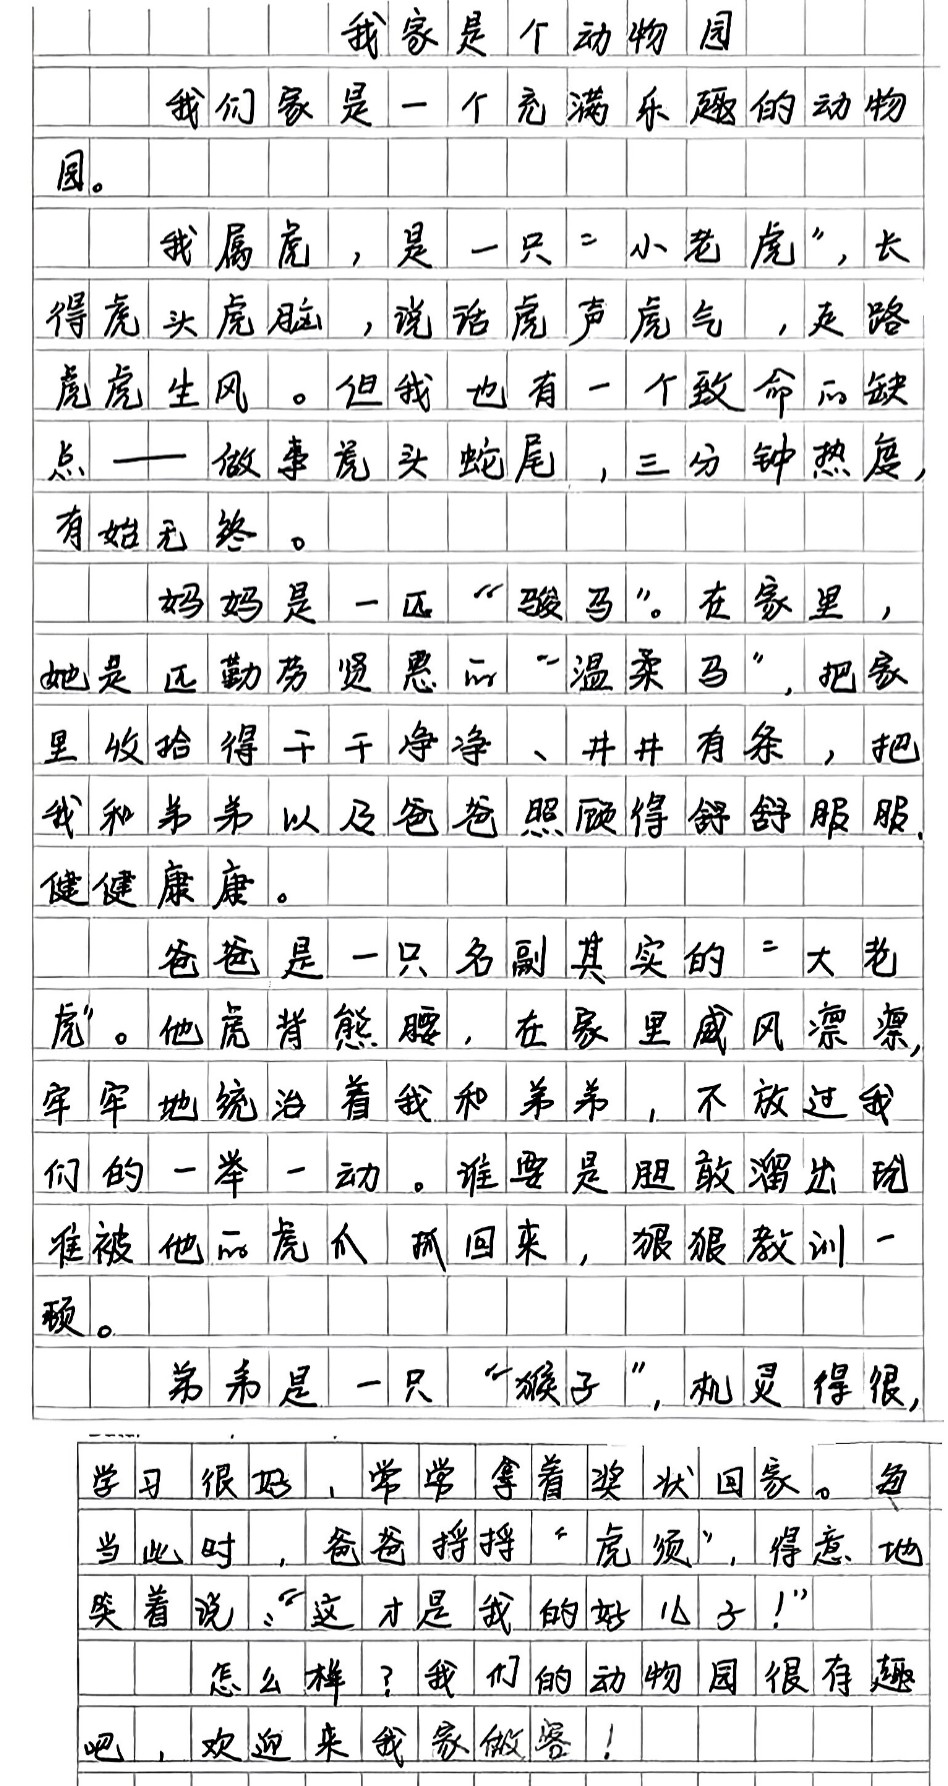 我家是个动物园
我们家是一个充满乐趣的动物
园。
我属虎，是一只“小老虎”，长
得虎头虎脑，说话虎声虎气，走路
虎虎生风。但我也有一个致命的缺
点——做事虎头蛇尾，三分钟热度，
有始无终。
妈妈是一匹“骏马”。在家里，
她是匹勤劳贤惠的“温柔马”，把家
里收拾得干干净净、井井有条，把
我和弟弟以及爸爸照顾得舒舒服服、
健健康康。
爸爸是一只名副其实的“大老
虎”。他虎背熊腰，在家里威风凛凛，
牢牢地统治着我和弟弟，不放过我
们的一举一动。谁要是胆敢溜出玩
准被他的虎爪抓回来，狠狠教训一
顿。
弟弟是一只“猴子”，机灵得很，
学习很好，常常拿着奖状回家。每
当此时，爸爸捋捋“虎须”，得意地
笑着说：“这才是我的好儿子！”
怎么样？我们的动物园很有趣
吧，欢迎来我家做客！